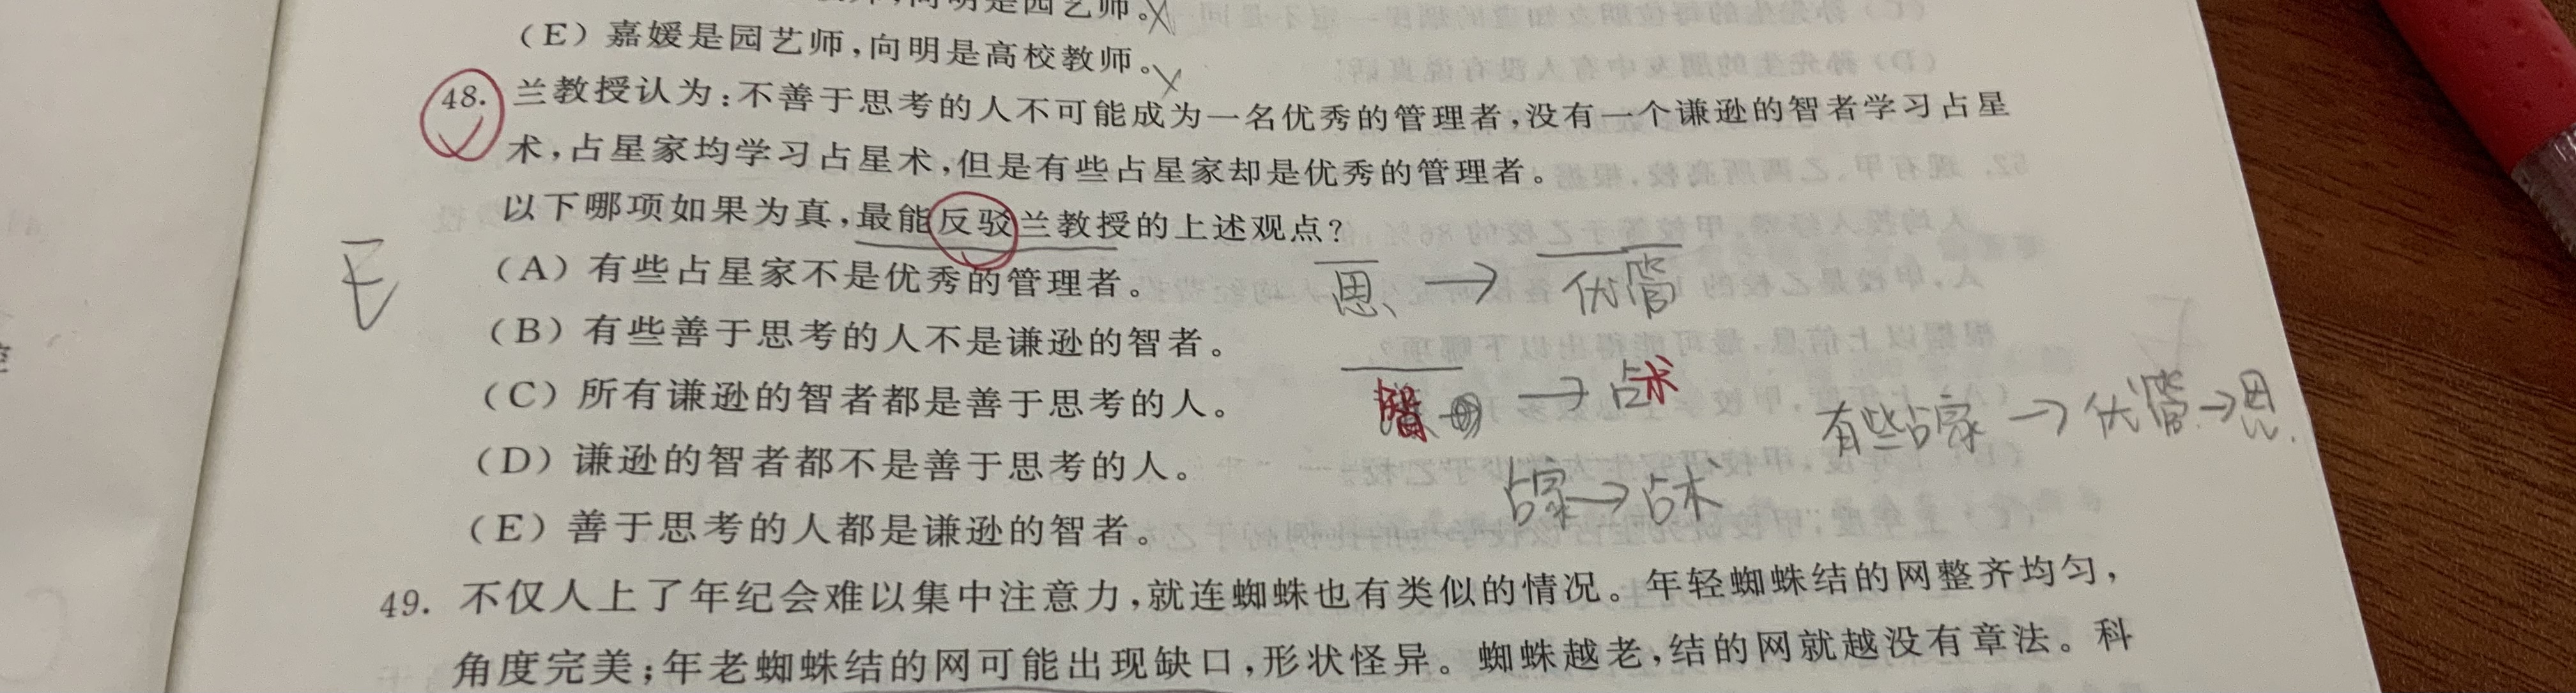 向明是园艺师。
(E)嘉媛是园艺师,向明是高校教师。
48. 兰教授认为:不善于思考的人不可能成为一名优秀的管理者,没有一个谦逊的智者学习占星
术,占星家均学习占星术,但是有些占星家却是优秀的管理者。
以下哪项如果为真,最能反驳兰教授的上述观点?
(A)有些占星家不是优秀的管理者。
(B)有些善于思考的人不是谦逊的智者。
(C)所有谦逊的智者都是善于思考的人。
(D)谦逊的智者都不是善于思考的人。
(E)善于思考的人都是谦逊的智者。
E
思 → 优管
智 → 占术
占家 → 占术
有些占家 → 优管 → 思
49. 不仅人上了年纪会难以集中注意力,就连蜘蛛也有类似的情况。年轻蜘蛛结的网整齐均匀,
角度完美;年老蜘蛛结的网可能出现缺口,形状怪异。蜘蛛越老,结的网就越没有章法。科